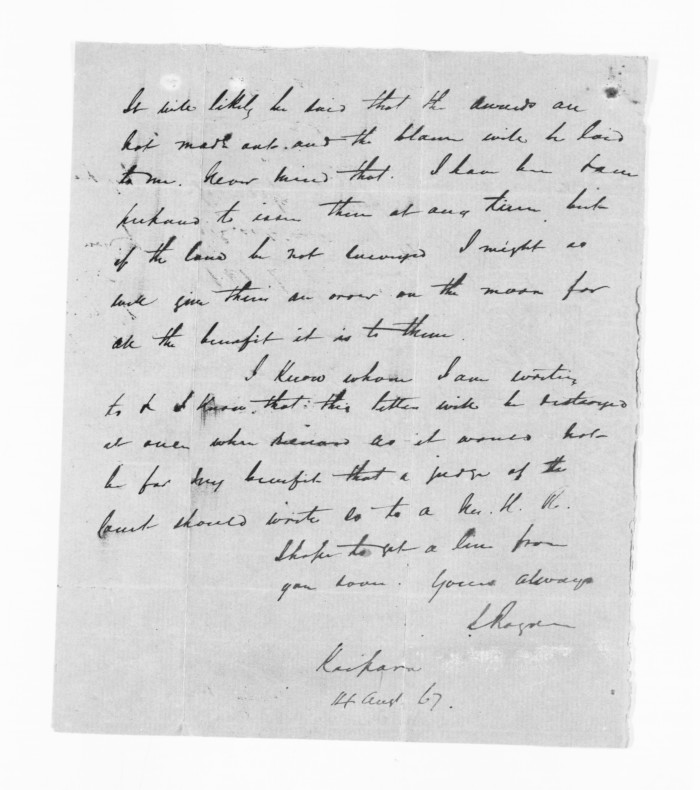 It will likely be said that the awards are
not made out and the blame will be laid
to me. Never mind that. I have been
prepared to issue them at any time but
if the land be not surveyed I might as
well give them an order on the moon for
all the benefit it is to them.
I know whom I am writing
to & I know that this letter will be destroyed
at once when received as it would not
be for my benefit that a judge of the
Court should write so to a M. H. R.
I hope to get a line from
you soon. Yours always
J Rogan
Kaipara
14 Augt 67.